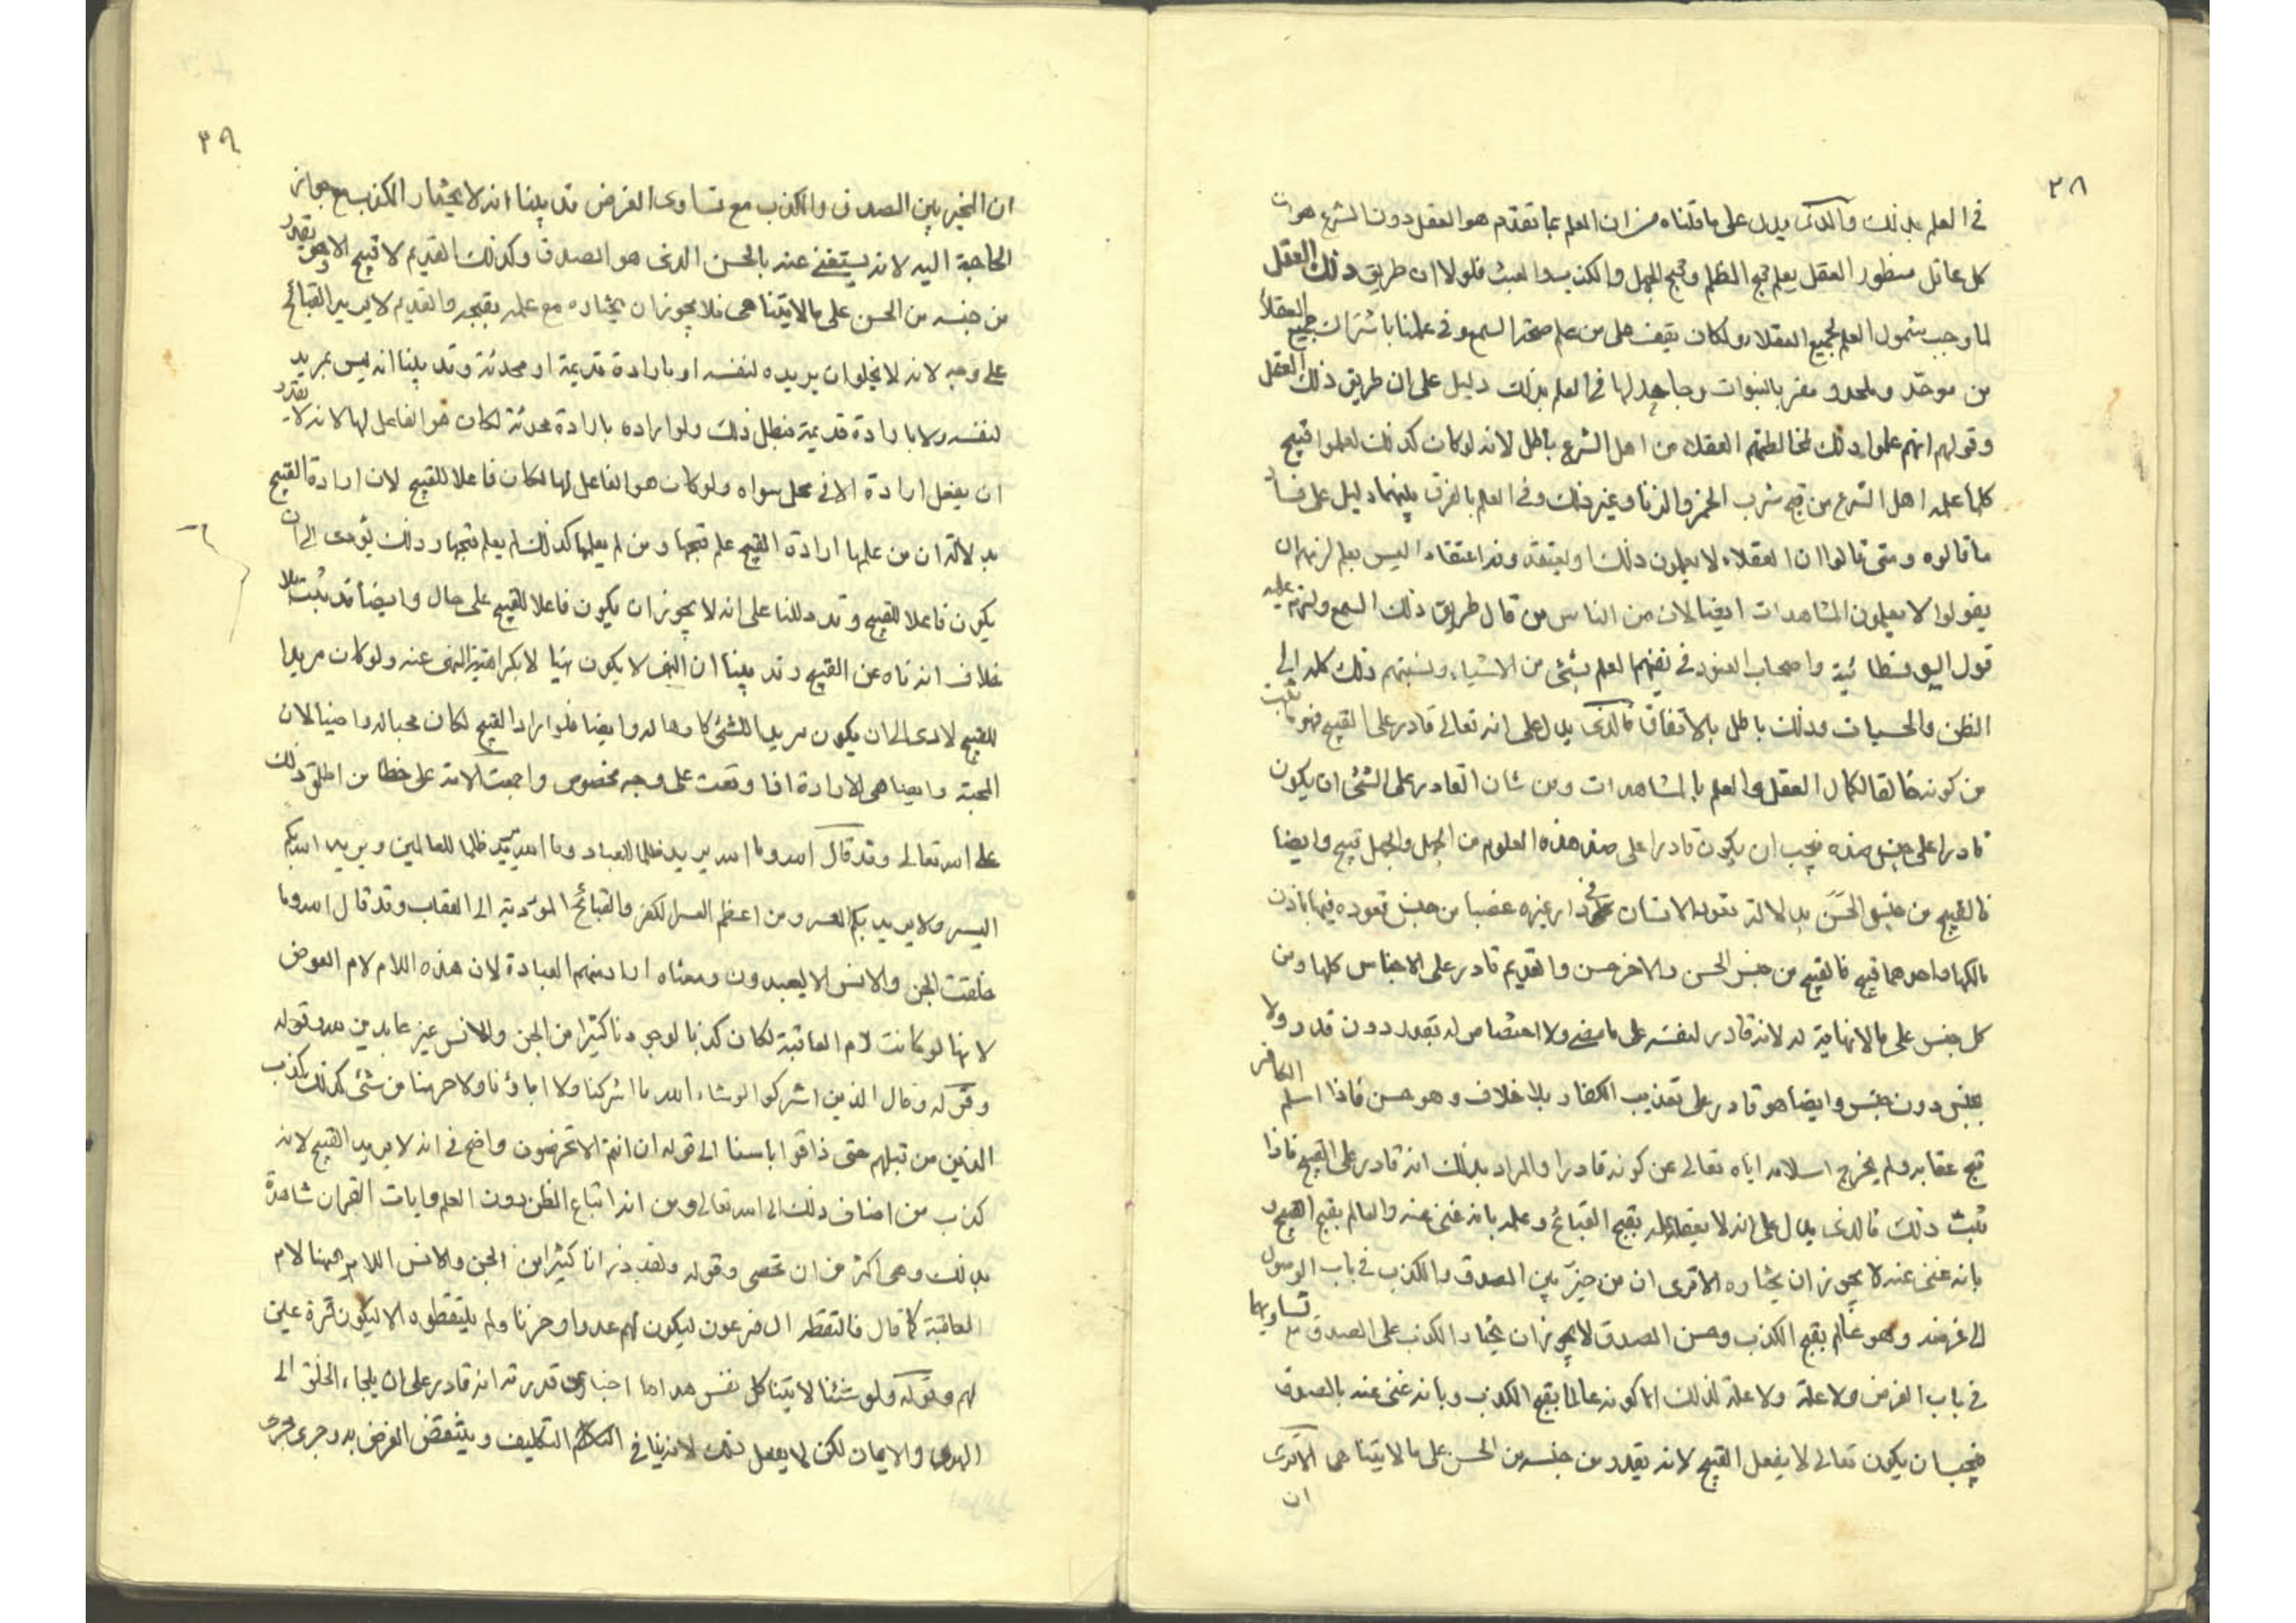 ٣٨
في العلم بذلك والذي يدل على ما قلناه من ان العلم بما تقدم هو العقل دون الشرع هو ان
كل عاقل منظور العقل يعلم قبح الظلم وقبح الجهل والكذب والعبث فلولا ان طريق ذلك العقل
لما وجب شمول العلم لجميع العقلاء ولكان يقف على من علم صحة السمع وفي علمنا باشتراك جميع العقلاء
من موحد وملحد ومقر بالنبوات وجاحد لها في العلم بذلك دليل على ان طريق ذلك العقل
وقولهم انهم علموا ذلك لمخالطتهم العقلاء من اهل الشرع باطل لانه لو كان كذلك لعلموا قبيح
كلما علمه اهل الشرع من قبح شرب الخمر والزنا وغير ذلك وفي العلم بالفرق بينهما دليل على فساد
ما قالوه ومتى قالوا ان العقلاء لا يعلمون ذلك اعتقاد ليس بعلم لزمهم ان
يقولوا لا يعلمون المشاهدات ايضا لان من الناس من قال طريق ذلك السمع ولزم عليه
قول السوفسطائية واصحاب العنود في نفيهم العلم بشئ من الاشياء ونسبتهم ذلك كله الى
الظن والحسبان وذلك باطل بالاتفاق فالذي يدل على انه تعالى قادر على القبيح فهو ما ثبت
من كونه خالقا لكمال العقل والعلم بالمشاهدات ومن شان القادر على الشئ ان يكون
قادرا على جنس ضده فيجب ان يكون قادرا على ضد هذه العلوم من الجهل والجهل قبيح وايضا
فالقبيح من جنس الحسن بدلالة قعود الانسان في دار غيره غصبا من جنس قعوده فيها باذن
مالكها واحدهما قبيح فالقبيح من جنس الحسن والاخر حسن والقديم قادر على الاجناس كلها ومن
كل جنس على ما لا نهاية له لانه قادر لنفسه على ما مضى ولا اختصاص له بقدر دون قدر ولا
بجنس دون جنس وايضا هو قادر على تعذيب الكفار بلا خلاف وهو حسن فاذا اسلم الكافر
قبح عقابه ولم يخرج اسلامه اياه تعالى عن كونه قادرا والمراد بذلك انه قادر على القبيح فاذا
ثبت ذلك فالذي يدل على انه لا يفعله علمه بقبح القبائح وعلمه بانه غني عنه والعالم بقبح القبيح و
بانه غني عنه لا يجوز ان يختاره الا ترى ان من خير بين الصدق والكذب في باب الوصول
الى غرضه وهو عالم بقبح الكذب وحسن الصدق لا يجوز ان يختار الكذب على الصدق مع تساويهما
في باب الغرض ولا علة لذلك الا كونه عالما بقبح الكذب وبانه غني عنه بالصدق
فيجب ان يكون تعالى لا يفعل القبيح لانه يقدر من جنسه من الحسن على ما لا يتناهى الا ترى
ان
٣٩
ان المخير بين الصدق والكذب مع تساوى الغرض قد بينا انه لا يختار الكذب مع جواز
الحاجة اليه لانه يستغنى عنه بالحسن الذى هو الصدق وكذلك القديم لا قبيح الا وهو يقدر
من جنسه من الحسن على ما لا يتناهى فلا يجوز ان يختاره مع علمه بقبحه والقديم لا يريد القبائح
على وجه لانه لا يخلو ان يريده لنفسه او بارادة قديمة او محدثة وقد بينا انه ليس بمريد
لنفسه ولا بارادة قديمة فبطل ذلك ولو اراده بارادة محدثة لكان هو الفاعل لها لانه لا يقدر
ان يفعل ارادة لا في محل سواه ولو كان هو الفاعل لها لكان فاعلا للقبيح لان ارادة القبيح
بدلالة ان من علمها ارادة القبيح علم قبحها ومن لم يعلمها كذلك لم يعلم قبحها وذلك يؤدى الى ان
يكون فاعلا للقبيح وقد دللنا على انه لا يجوز ان يكون فاعلا للقبيح على حال وايضا قد ثبت بلا
خلاف انه ناه عن القبيح وقد بينا ان النهى لا يكون نهيا الا بكراهته المنهى عنه ولو كان مريدا
للقبيح لادى الى ان يكون مريدا للشئ كارها له وايضا فلو اراد القبيح لكان محبا له راضيا لان
المحبة والرضا هى الارادة اذا وقعت على وجه مخصوص واجمعت الامة على خطا من اطلق ذلك
على الله تعالى وقد قال الله وما الله يريد ظلما للعباد وما الله يريد ظلما للعالمين ويريد الله بكم
اليسر ولا يريد بكم العسر ومن اعظم العسر الكفر والقبائح المؤدية الى العقاب وقد قال الله وما
خلقت الجن والانس الا ليعبدون ومعناه اراد منهم العبادة لان هذه اللام لام الغرض
لانها لو كانت لام العاقبة لكان كذبا لوجودنا كثيرا من الجن والانس غير عابدين لله وقوله
وقوله وقال الذين اشركوا لو شاء الله ما اشركنا ولا اباؤنا ولا حرمنا من شئ كذلك كذب
الذين من قبلهم حتى ذاقوا باسنا الى قوله ان انتم الا تخرصون واضح في انه لا يريد القبيح لانه
كذب من اضاف ذلك الى الله تعالى وبين انه اتباع الظن دون العلم وايات القران شاهدة
بذلك وهى اكثر من ان تحصى وقوله ولقد ذرانا كثيرا من الجن والانس اللام هيهنا لام
العاقبة كما قال فالتقطه ال فرعون ليكون لهم عدوا وحزنا ولم يلتقطوه الا ليكون قرة عين
لهم وقوله ولو شئنا لاتينا كل نفس هداها اخبار عن قدرته انه قادر على ان يلجاء الخلق الى
الهدى والايمان لكن لا يفعل ذلك لانه ينافى التكليف وينتقض الغرض به وجرى مجرى